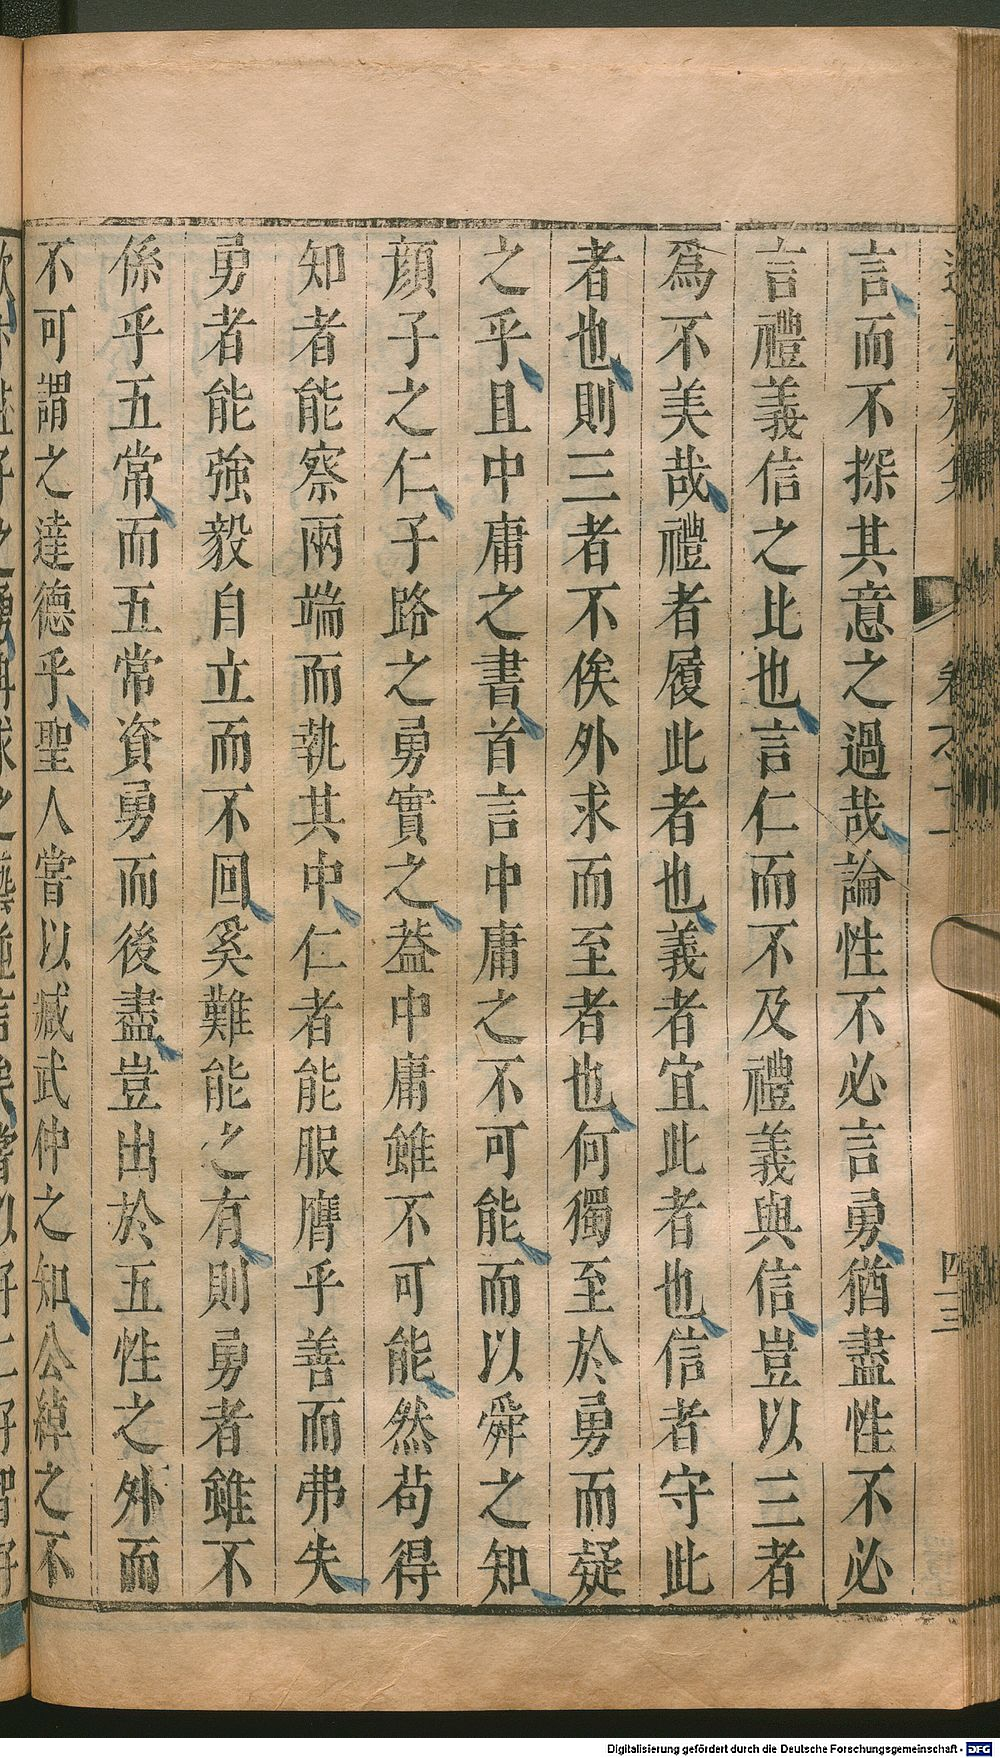 言而不探其意之過哉論性不必言勇猶盡性不必
言禮義信之比也言仁而不及禮義與信豈以三者
爲不美哉禮者履此者也義者宜此者也信者守此
者也則三者不俟外求而至者也何獨至於勇而疑
之乎且中庸之書首言中庸之不可能而以舜之知
顔子之仁子路之勇實之葢中庸雖不可能然苟得
知者能察兩端而執其中仁者能服膺乎善而弗失
勇者能強毅自立而不回奚難能之有則勇者雖不
係乎五常而五常資勇而後盡豈出於五性之外而
不可謂之達德乎聖人嘗以臧武仲之知公綽之不
Digitalisierung gefördert durch die Deutsche Forschungsgemeinschaft - DFG